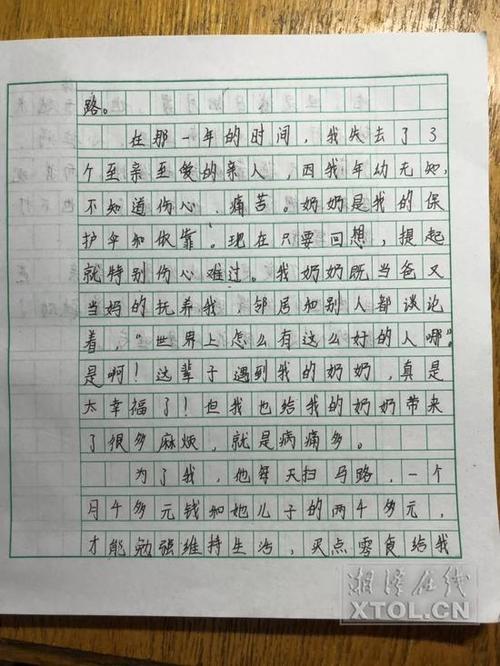 路。
在那一年的时间，我失去了3
个至亲至爱的亲人，因我年幼无知，
不知道伤心、痛苦。奶奶是我的保
护伞和依靠。现在只要回想，提起
就特别伤心难过。我奶奶既当爸又
当妈的抚养我，邻居和别人都谈论
着，“世界上怎么有这么好的人哪”。
是啊！这辈子遇到我的奶奶，真是
太幸福了！但我也给我的奶奶带来
了很多麻烦，就是病痛多。
为了我，他每天扫马路，一个
月4多元钱和她儿子的两4多元，
才能勉强维持生活，买点零食给我
湘潭在线
XTOL.CN